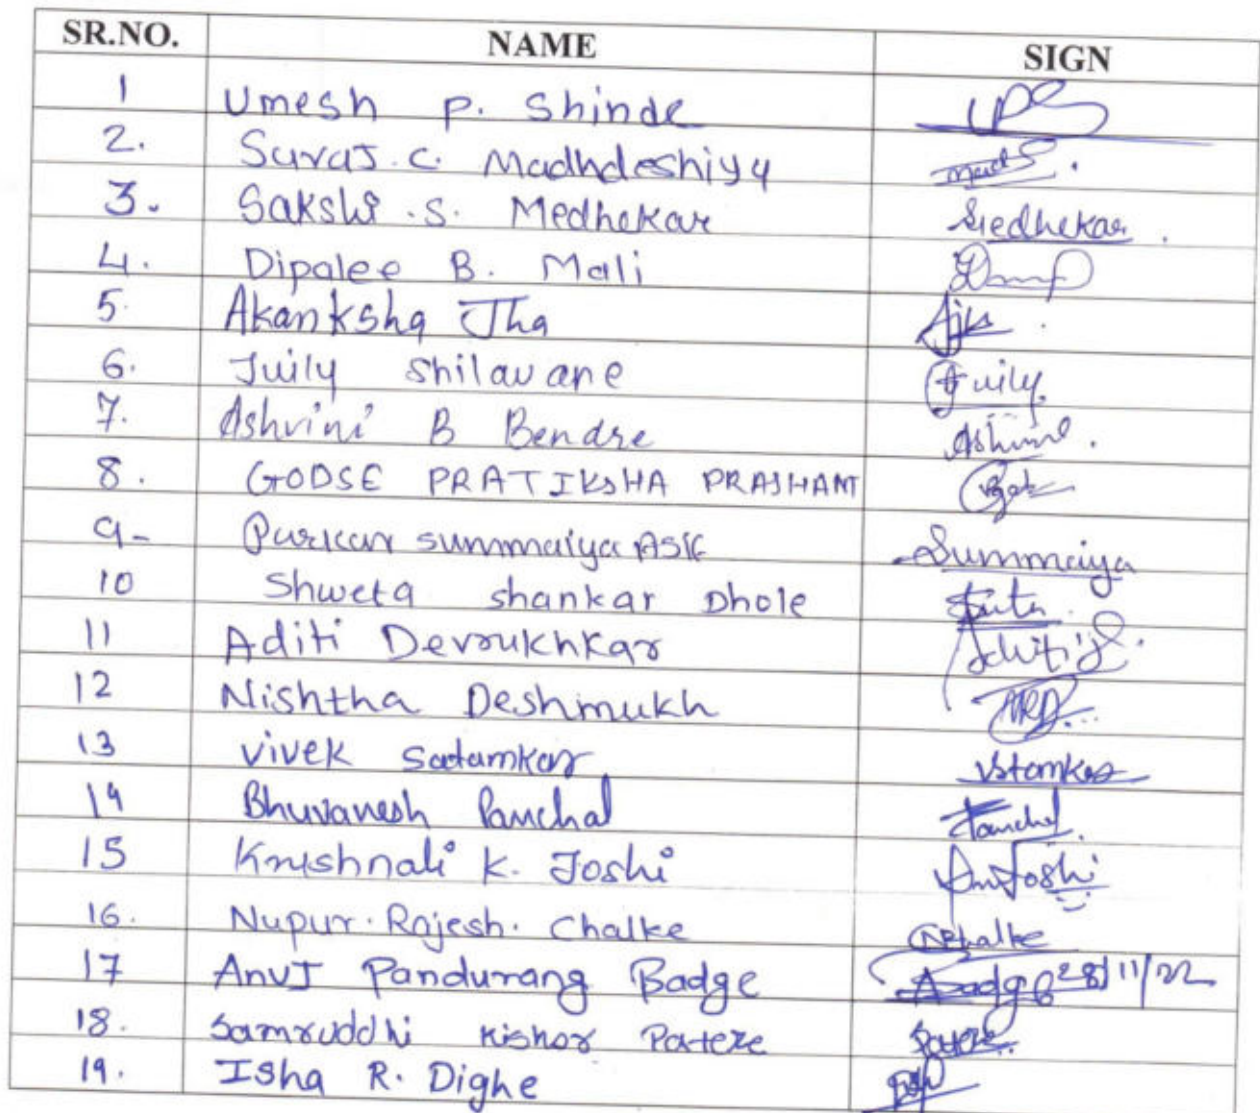 SR.NO. NAME SIGN
1 Umesh P. Shinde
2. Suraj. C. Madhdeshiya
3. Sakshi .S. Medhekar Medhekar .
4. Dipalee B. Mali
5. Akanksha Jha
6. Juily Shilavane Juily
7. Ashvini B Bendre
8. GODSE PRATIKSHA PRASHANT
9- Purkar summaiya ASIF Summaiya
10 Shweta shankar Dhole
11 Aditi Devrukhkar
12 Nishtha Deshmukh
13 vivek Satamkar
14 Bhuvanesh Panchal Panchal
15 Krushnali K. Joshi
16. Nupur. Rajesh. Chalke NRchalke
17 Anuj Pandurang Badge 28/11/22
18. Samruddhi Kishor Patere
19. Isha R. Dighe